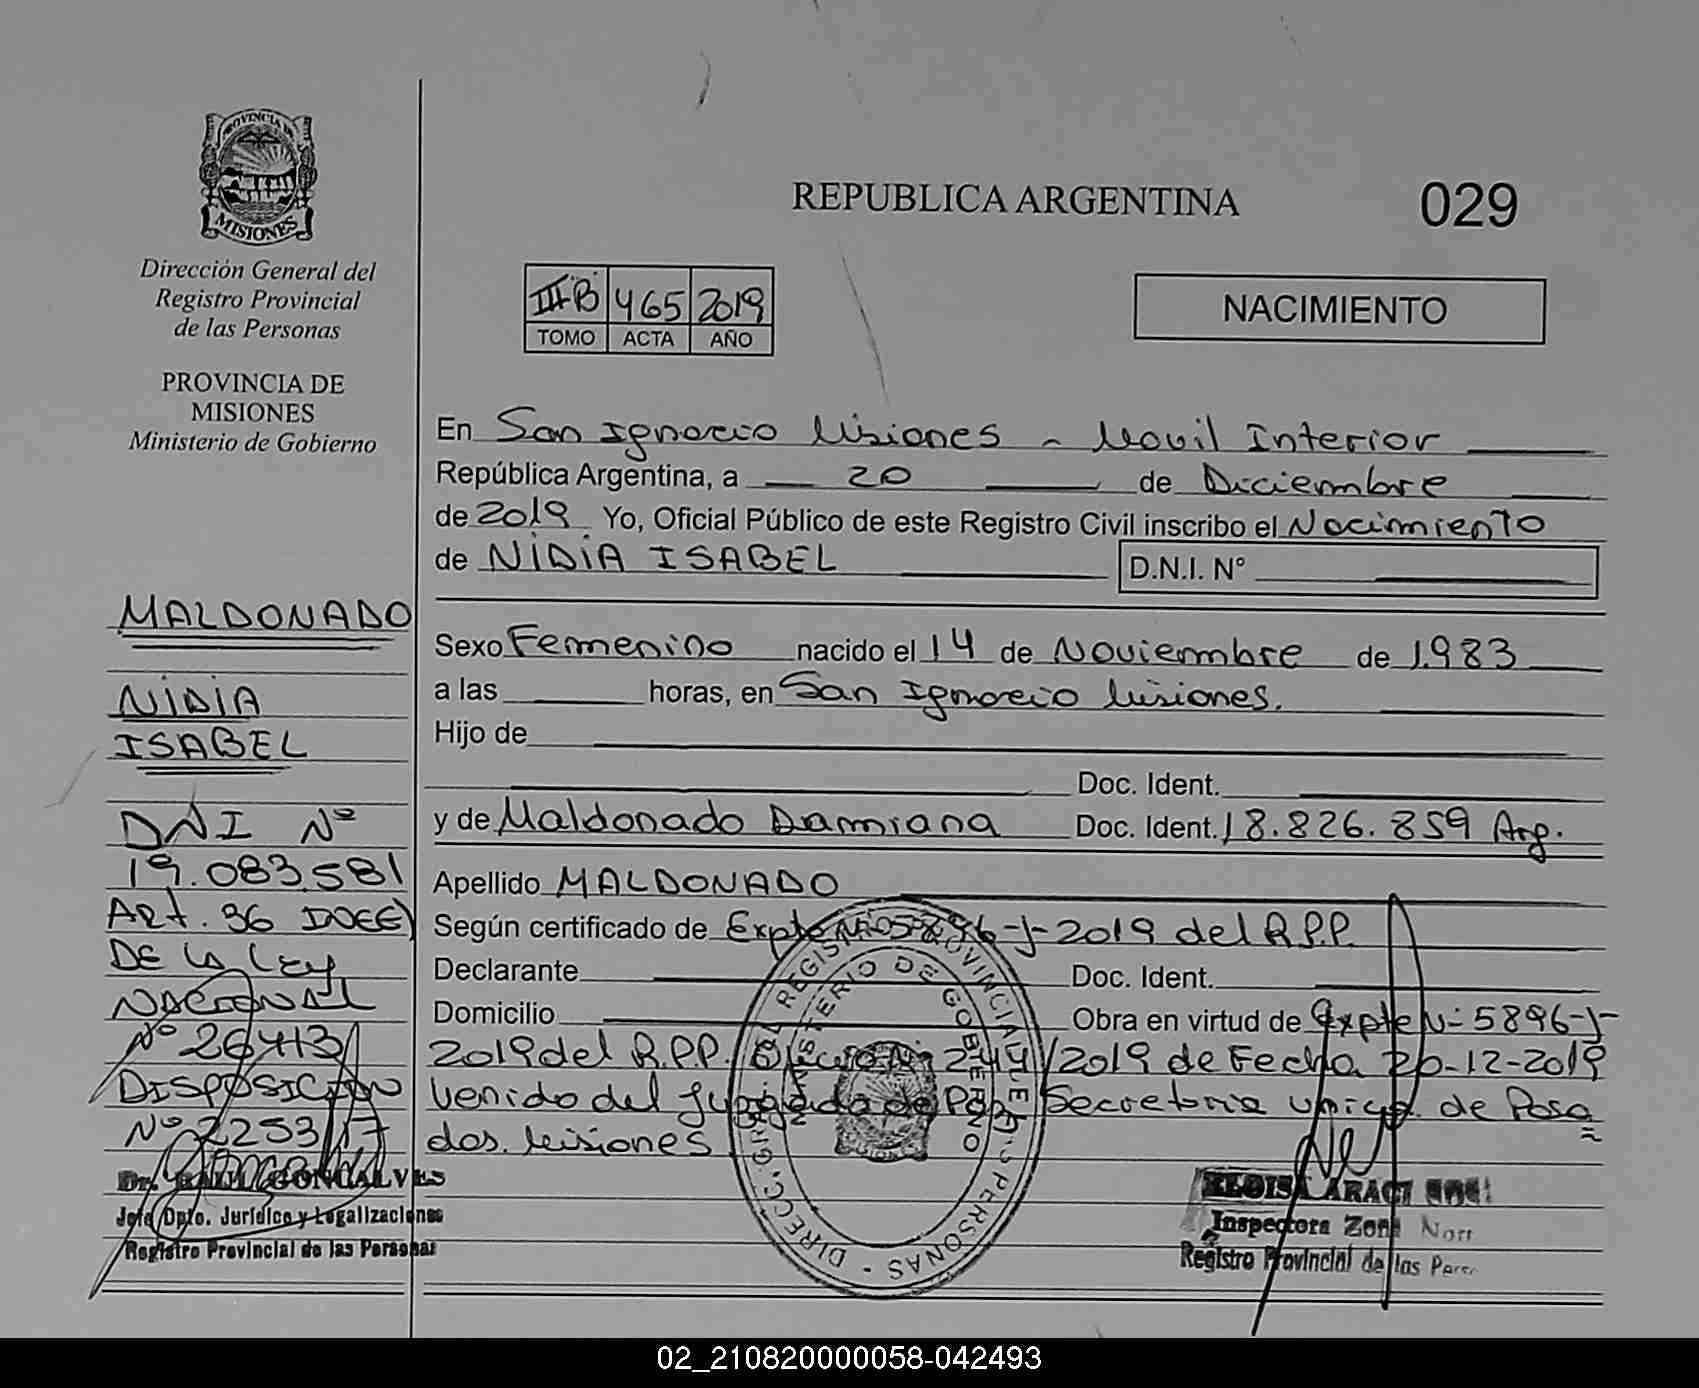 PROVINCIA DE
MISIONES
Dirección General del
Registro Provincial
de las Personas
PROVINCIA DE
MISIONES
Ministerio de Gobierno
MALDONADO
NIDIA
ISABEL
DNI Nº
19.083.581
Art. 36 INCE)
DE LA Ley
NACIONAL
Nº 26413
DISPOSICION
Nº 2253/17
Dr. GONCALVES
Jefe Dpto. Jurídico y Legalizaciones
Registro Provincial de las Personas
REPUBLICA ARGENTINA
029
III B 465 2019
TOMO ACTA AÑO
NACIMIENTO
En San Ignacio Misiones - Movil Interior
República Argentina, a 20 de Diciembre
de 2019 Yo, Oficial Público de este Registro Civil inscribo el Nacimiento
de NIDIA ISABEL D.N.I. N°
Sexo Femenino nacido el 14 de Noviembre de 1.983
a las horas, en San Ignacio Misiones.
Hijo de
Doc. Ident.
y de Maldonado Damiana Doc. Ident. 18.826.859 Arg.
Apellido MALDONADO
Según certificado de Expte Nº 5896-J-2019 del R.P.P.
Declarante Doc. Ident.
Domicilio Obra en virtud de Expte Nº 5896-J-
2019 del R.P.P. Oficio Nº 244/2019 de Fecha 20-12-2019
venido del Juzgado de Paz, Secretaria unica de Posa
das. Misiones
DIREC. GRAL. REGISTRO PROVINCIAL DE LAS PERSONAS
MINISTERIO DE GOBIERNO
ELOISA ARACI
Inspectora Zona Nort
Registro Provincial de las Pers
02_210820000058-042493